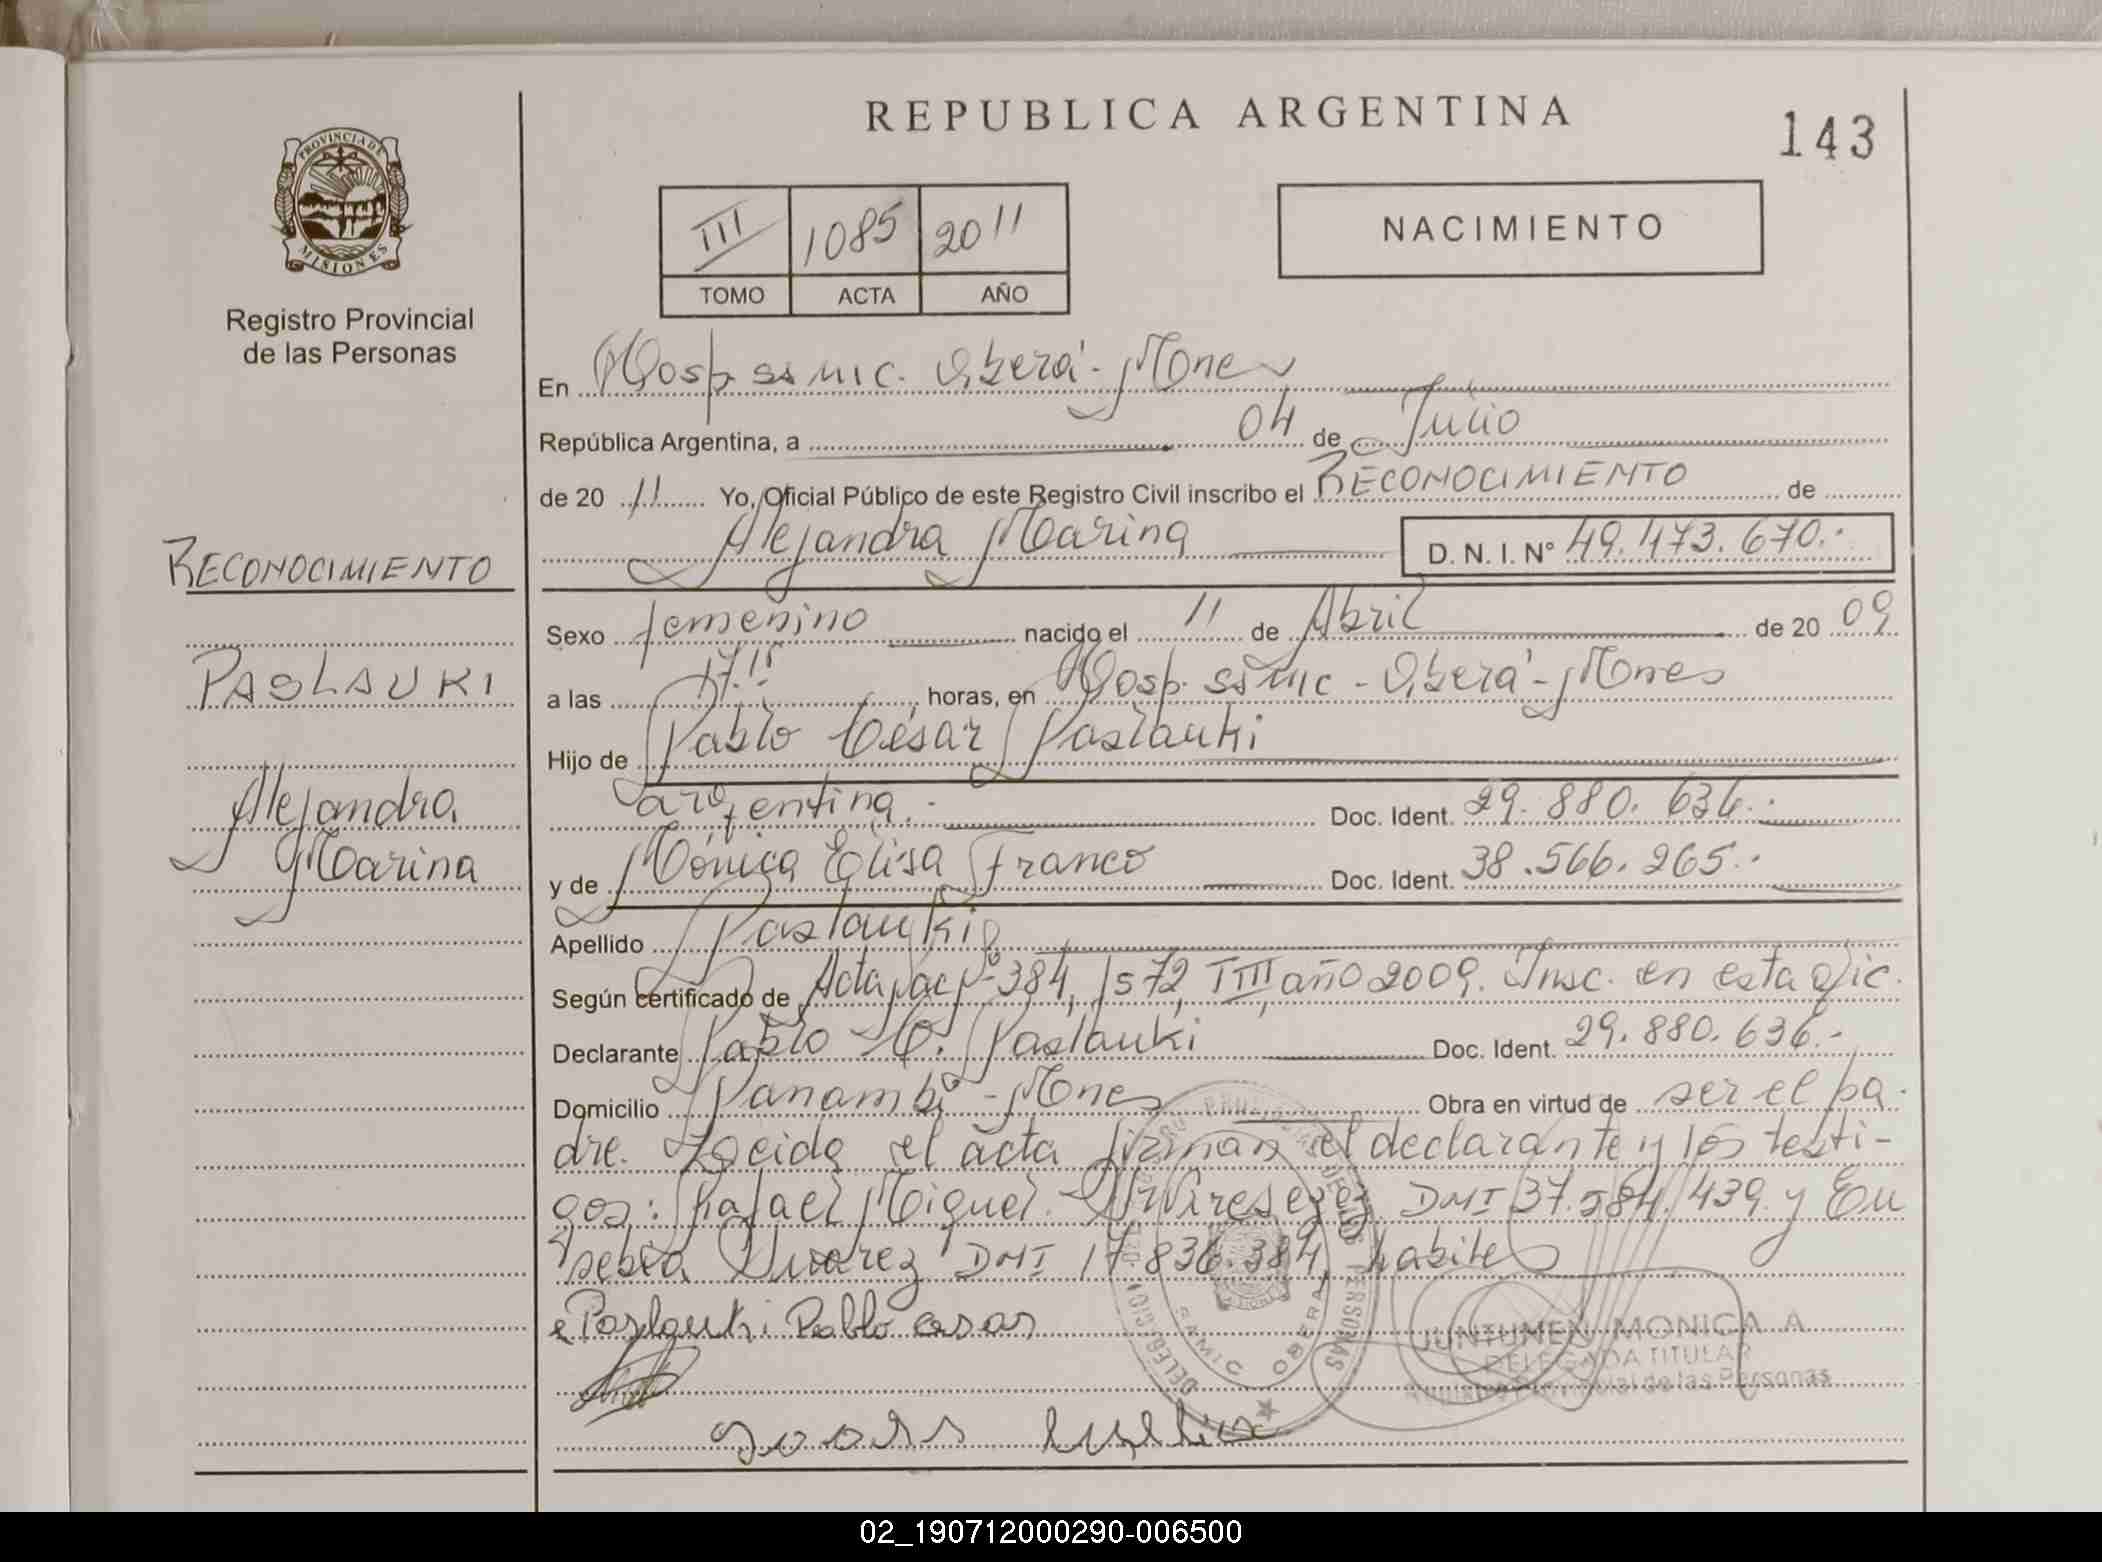 REPUBLICA ARGENTINA
143
PROVINCIA DE
MISIONES
Registro Provincial
de las Personas
III 1085 2011
TOMO ACTA AÑO
NACIMIENTO
En Hosp. SAMIC. Oberá - Mnes
República Argentina, a 04 de Julio
de 20 11 Yo, Oficial Público de este Registro Civil inscribo el RECONOCIMIENTO de
Alejandra Marina D. N. I. N° 49.473.670.-
RECONOCIMIENTO
Sexo femenino nacido el 11 de Abril de 20 09
PASLAUKI
a las 17.15 horas, en Hosp. SAMIC - Oberá - Mnes
Hijo de Pablo César Paslauki
Alejandra
argentina.- Doc. Ident. 29.880.636.-
Marina
y de Mónica Elisa Franco Doc. Ident. 38.566.265.-
Apellido Paslauki
Según certificado de Acta nac. N° 384, fs 72, T III año 2009. Insc. en esta ofic.
Declarante Pablo C. Paslauki Doc. Ident. 29.880.636.-
Domicilio Panambí - Mnes Obra en virtud de ser el pa
dre. Leída el acta firman el declarante y los testi-
gos: Rafael Miguel DNI 37.584.439. y Eu
sebia Suarez DNI 17.836.384, hábiles
Paslauki Pablo cesar
JUNTUMEN MONICA A
DELEGADA TITULAR
Registro Provincial de las Personas
SAMIC OBERA
02_190712000290-006500